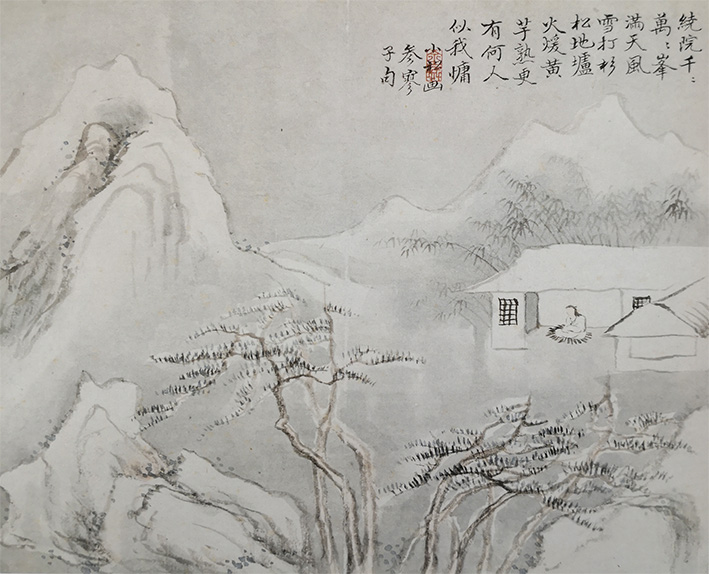 繞院千〻
萬〻峯
滿天風
雪打杉
松地壚
火煖黃
芋熟更
有何人
似我慵
小 画
参寥
子句